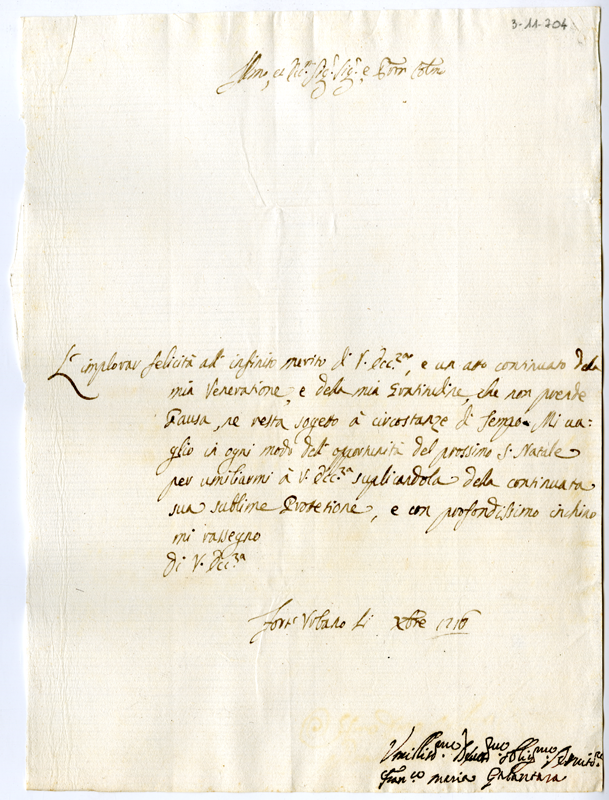 3-11-204
Illmo, et Ecc.mo Sig.r Sig.r e Pron Colmo
L' implorar felicità all' infinito merito di V. Ecc.za, e un atto continuato dela
mia Veneratione, e dela mia Gratitudine, che non prende
Pausa, ne resta sogeto à circostanze di Tempo. Mi ua:
glio in ogni modo dell' oportunità del prossimo S. Natale
per umiliarmi à V. Ecc.za suplicandola dela continuata
sua sublime Protetione, e con profondissimo inchino
mi rassegno
Di V. Ecc.za
Forte Urbano Li Xbre 1716
Umiliss.mo Devot.mo Oblig.mo Servit.re
Fran.co Maria Galantara